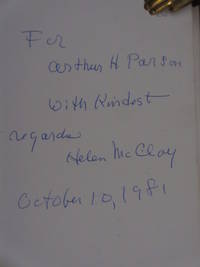 For
Arthur H Parson
with Kindest
regards
Helen McCloy
October 10, 1981